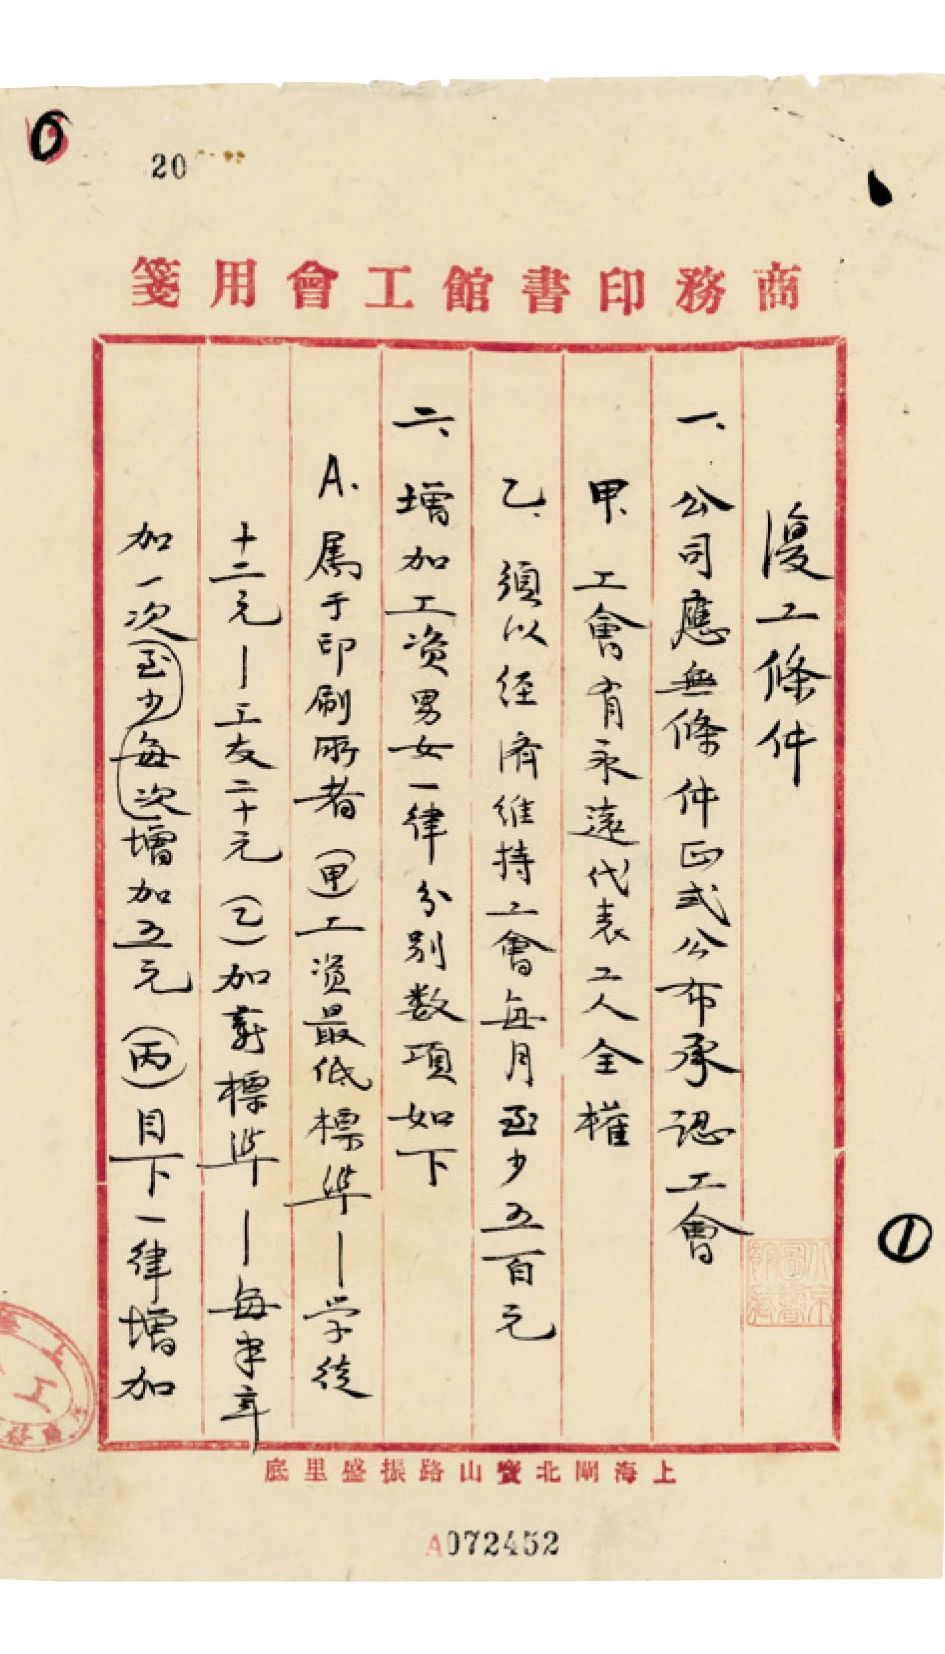 20
商務印書館工會用箋
復工條件
一、公司應無條件正式公布承認工會
甲、工會有永遠代表工人全權
乙、須以经濟維持工會每月至少五百元
二、增加工资男女一律分别数項如下
A.属于印刷所者(甲)工资最低標準—学徒
十二元—工友二十元(乙)加薪標準—每半年
加一次至少每次增加五元(丙)目下一律增加
①
上海閘北寶山路振盛里底
A072452